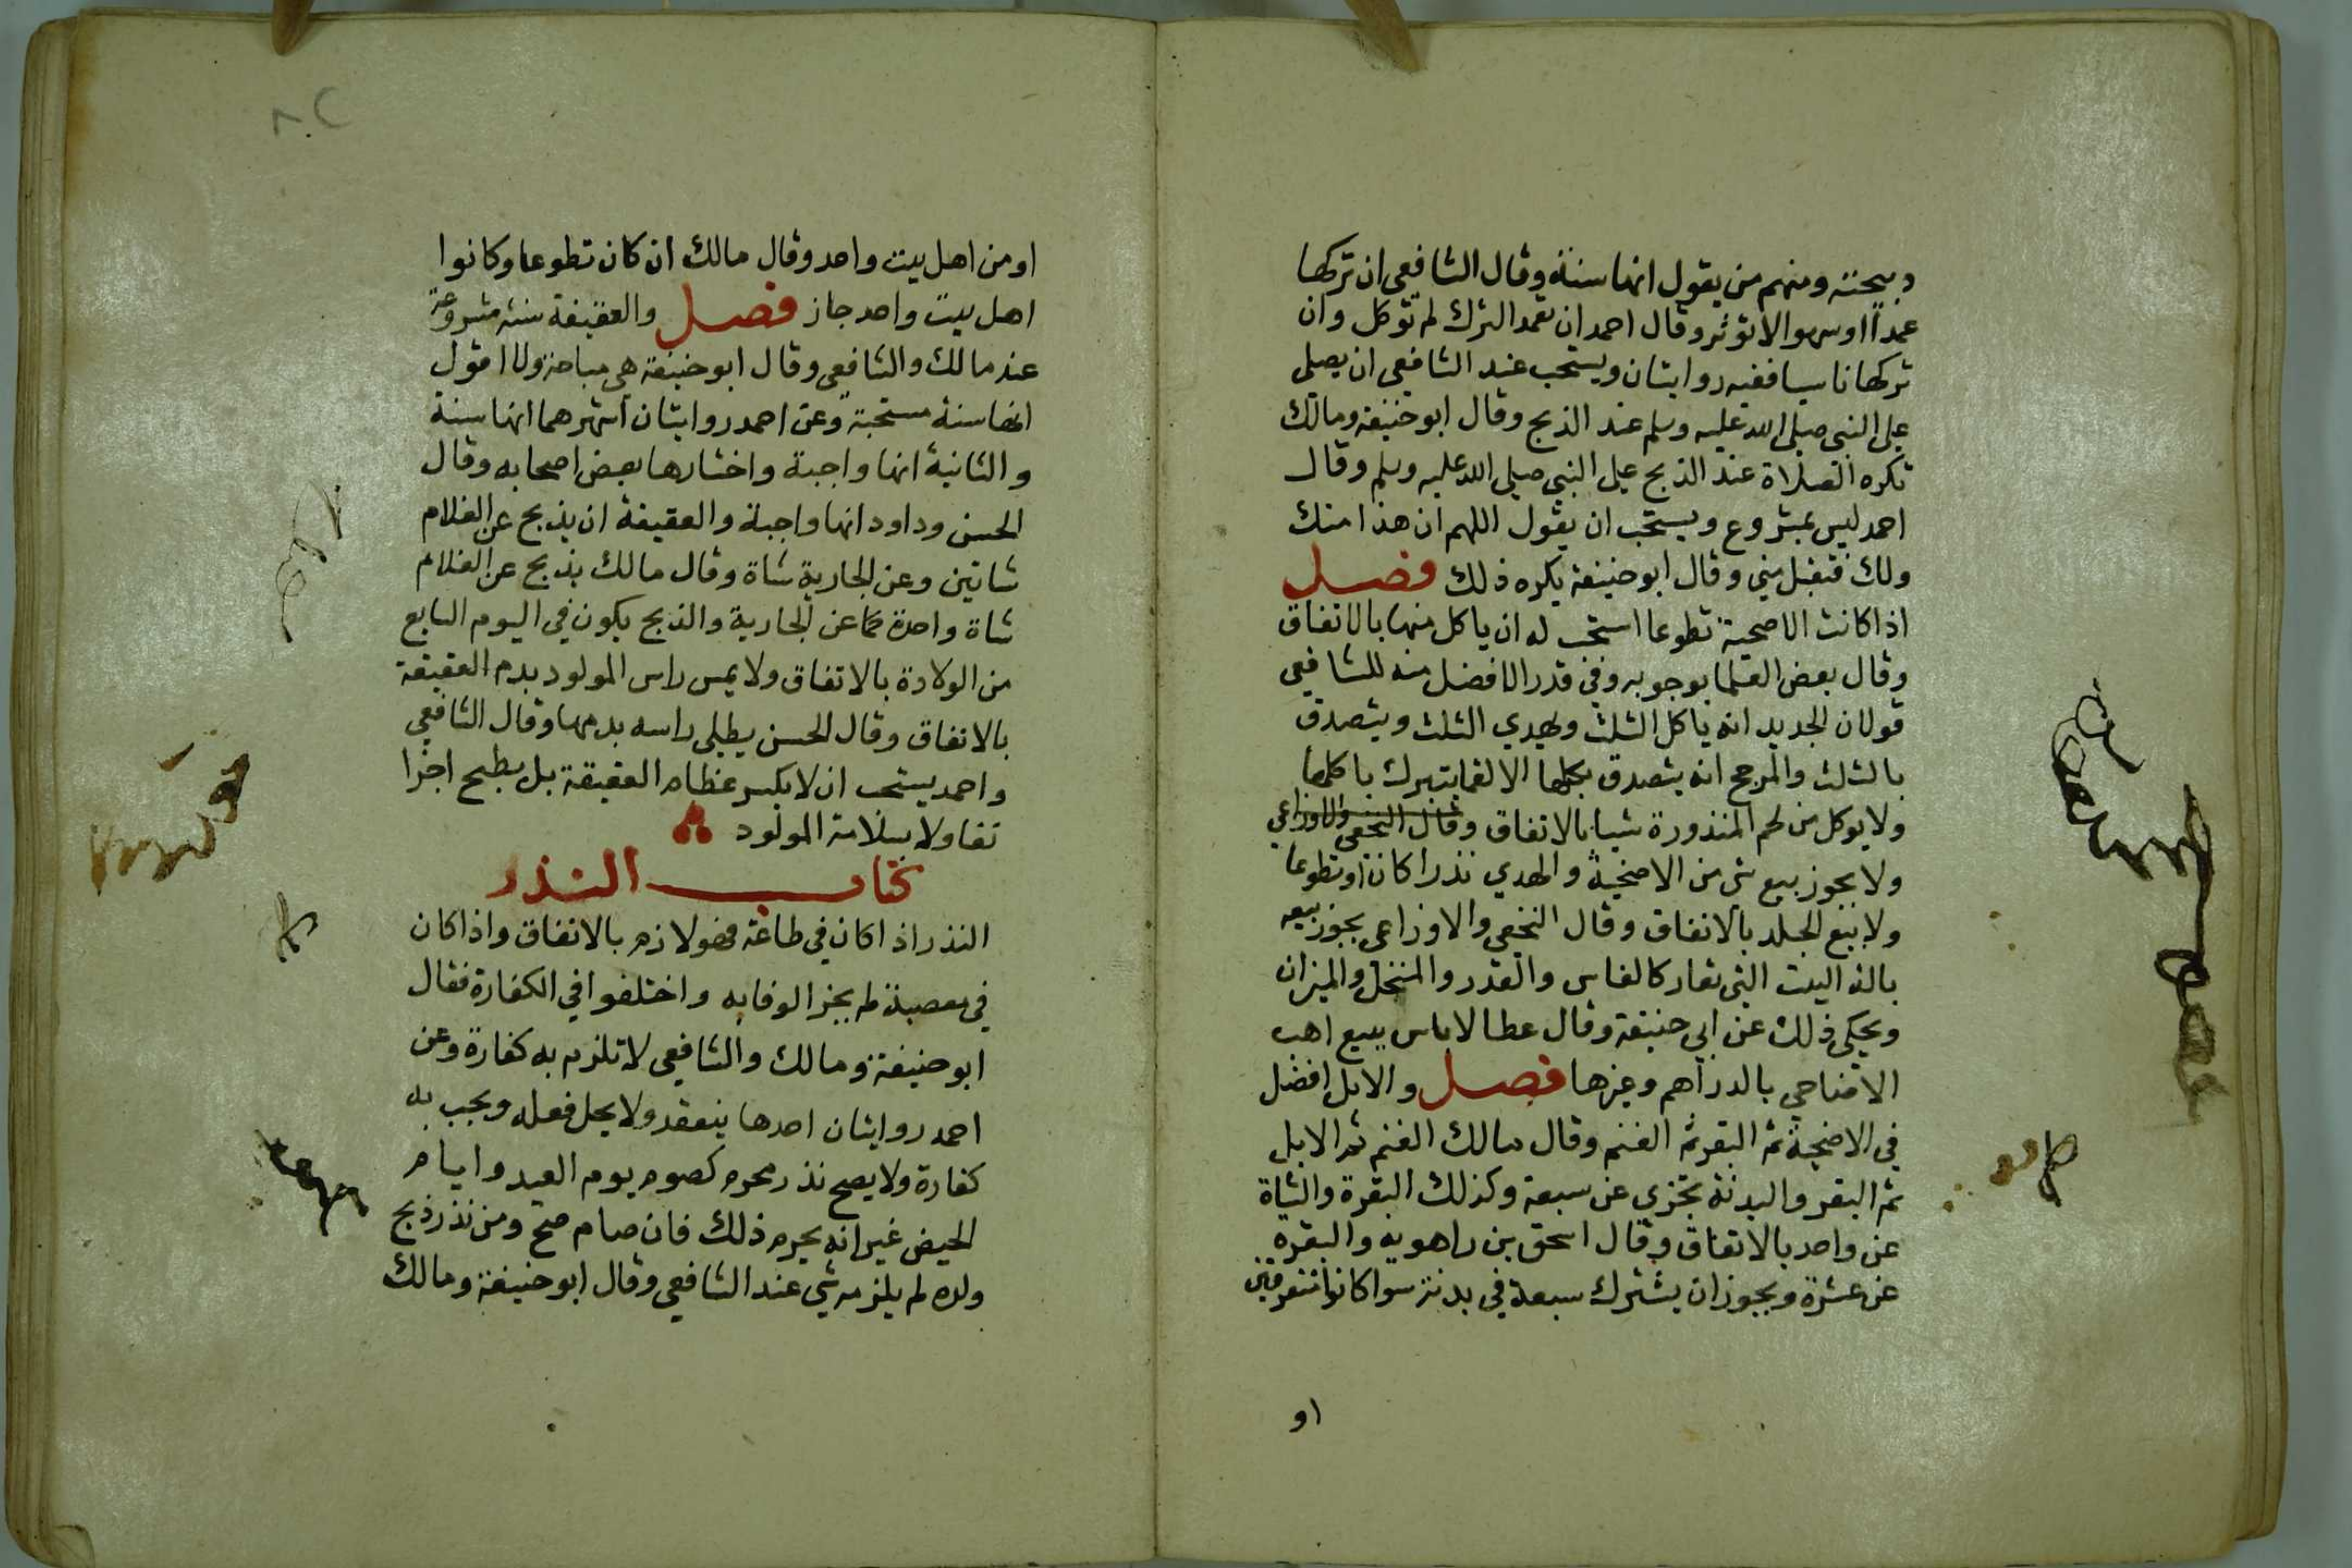 ذبيحته ومنهم من يقول انها سنة وقال الشافعي ان تركها
عمداً او سهوا لا تؤثر وقال احمد ان تعمد الترك لم تؤكل وان
تركها ناسيا ففيه روايتان ويستحب عند الشافعي ان يصلى
على النبي صلى الله عليه وسلم عند الذبح وقال ابو حنيفة ومالك
تكره الصلاة عند الذبح على النبي صلى الله عليه وسلم وقال
احمد ليس بمشروع ويستحب ان يقول اللهم ان هذا منك
ولك فتقبل مني وقال ابو حنيفة يكره ذلك فصل
اذا كانت الاضحية تطوعا استحب له ان ياكل منها بالاتفاق
وقال بعض العلما بوجوبه وفي قدر الافضل منه للشافعي
قولان الجديد انه ياكل الثلث ويهدي الثلث ويتصدق
بالثلث والمرجح انه يتصدق بكلها الا لقما يتبرك باكلها
ولا يوكل من لحم المنذورة شيا بالاتفاق وقال النخعي والاوزاعي
ولا يجوز بيع شي من الاضحية والهدي نذرا كان او تطوعا
ولا بيع الجلد بالاتفاق وقال النخعي والاوزاعي يجوز بيعه
بالة البيت التي تعار كالفاس والقدر والمنخل والميزان
ويحكى ذلك عن ابي حنيفة وقال عطا لا باس ببيع اهب
الاضاحي بالدراهم وغيرها فصل والابل افضل
في الاضحية ثم البقر ثم الغنم وقال مالك الغنم ثم الابل
ثم البقر والبدنة تجزي عن سبعة وكذلك البقرة والشاة
عن واحد بالاتفاق وقال اسحق بن راهويه والبقرة
عن عشرة ويجوز ان يشترك سبعة في بدنة سوا كانوا متفرقين
او
٨٢
او من اهل بيت واحد وقال مالك ان كان تطوعا وكانوا
اهل بيت واحد جاز فصل والعقيقة سنة مشروعة
عند مالك والشافعي وقال ابو حنيفة هي مباحة ولا اقول
انها سنة مستحبة وعن احمد روايتان اشهرهما انها سنة
والثانية انها واجبة واختارها بعض اصحابه وقال
الحسن وداود انها واجبة والعقيقة ان يذبح عن الغلام
شاتين وعن الجارية شاة وقال مالك يذبح عن الغلام
شاة واحدة كما عن الجارية والذبح يكون في اليوم السابع
من الولادة بالاتفاق ولا يمس راس المولود بدم العقيقة
بالاتفاق وقال الحسن يطلى راسه بدمها وقال الشافعي
واحمد يستحب ان لا يكسر عظام العقيقة بل يطبخ اجزا
تفاولا بسلامة المولود
كتاب النذر
النذر اذا كان في طاعة فهو لازم بالاتفاق واذا كان
في معصية لم يجز الوفا به واختلفوا في الكفارة فقال
ابو حنيفة ومالك والشافعي لا تلزم به كفارة وعن
احمد روايتان احدها ينعقد ولا يحل فعله ويجب به
كفارة ولا يصح نذر محرم كصوم يوم العيد وايام
الحيض غير انه يحرم ذلك فان صام صح ومن نذر ذبح
ولده لم يلزمه شي عند الشافعي وقال ابو حنيفة ومالك